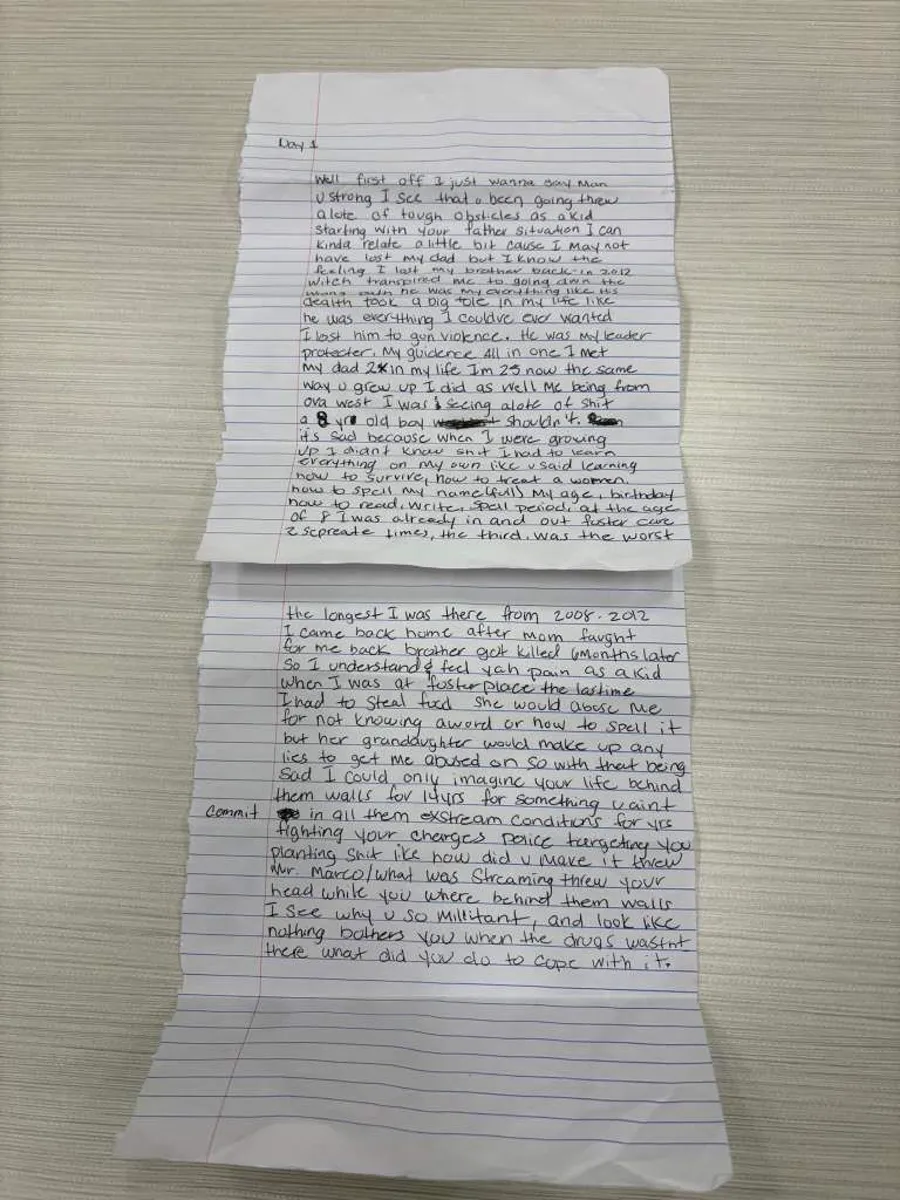 Day 1
Well first off I just wanna say Man
u strong I see that u been going threw
alote of tough obsticles as a kid
starting with your father situation I can
kinda relate a little bit cause I may not
have lost my dad but I know the
feeling I lost my brother back in 2012
witch transpired me to going down the
wrong path he was my everything like his
dealth took a big tole in my life like
he was everything I couldve ever wanted
I lost him to gun violence. He was my leader
protecter, My guidence All in one I met
my dad 2x in my life Im 25 now the same
way u grew up I did as well Me being from
ova west I was seeing alote of shit
a 8 yr old boy shouldn't.
its sad because when I were growing
up I didnt know shit I had to learn
everything on my own like u said learning
how to survive, how to treat a women,
how to spell my name (full) my age, birthday
how to read, write, spell period, at the age
of 8 I was already in and out foster care
2 sepreate times, the third, was the worst
the longest I was there from 2008-2012
I came back home after mom faught
for me back brother got killed 6months later
So I understand & feel yah pain as a kid
when I was at foster place the lastime
I had to steal food she would abose me
for not knowing a word or how to spell it
but her grandaughter would make up any
lies to get me abused on so with that being
sad I could only imagine your life behind
them walls for 14yrs for something u aint
commit in all them exstream conditions for yrs
fighting your charges police targeting you
planting shit like how did u make it threw
Mr. Marco/what was streaming threw your
head while you where behind them walls
I see why u so millitant, and look like
nothing bothers you when the drugs wastnt
there what did you do to cope with it.